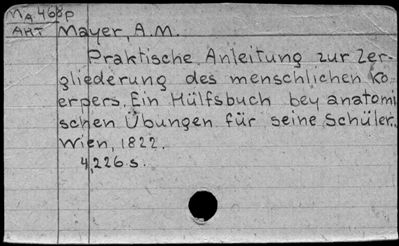 Ma 468p
AHT Mayer, A.M.
Praktische Anleitung zur Zer-
gliederung des menschlichen Ko
erpers. Ein Hülfsbuch bey anatomi
schen Übungen für seine Schüler.
Wien, 1822.
4,226 s.